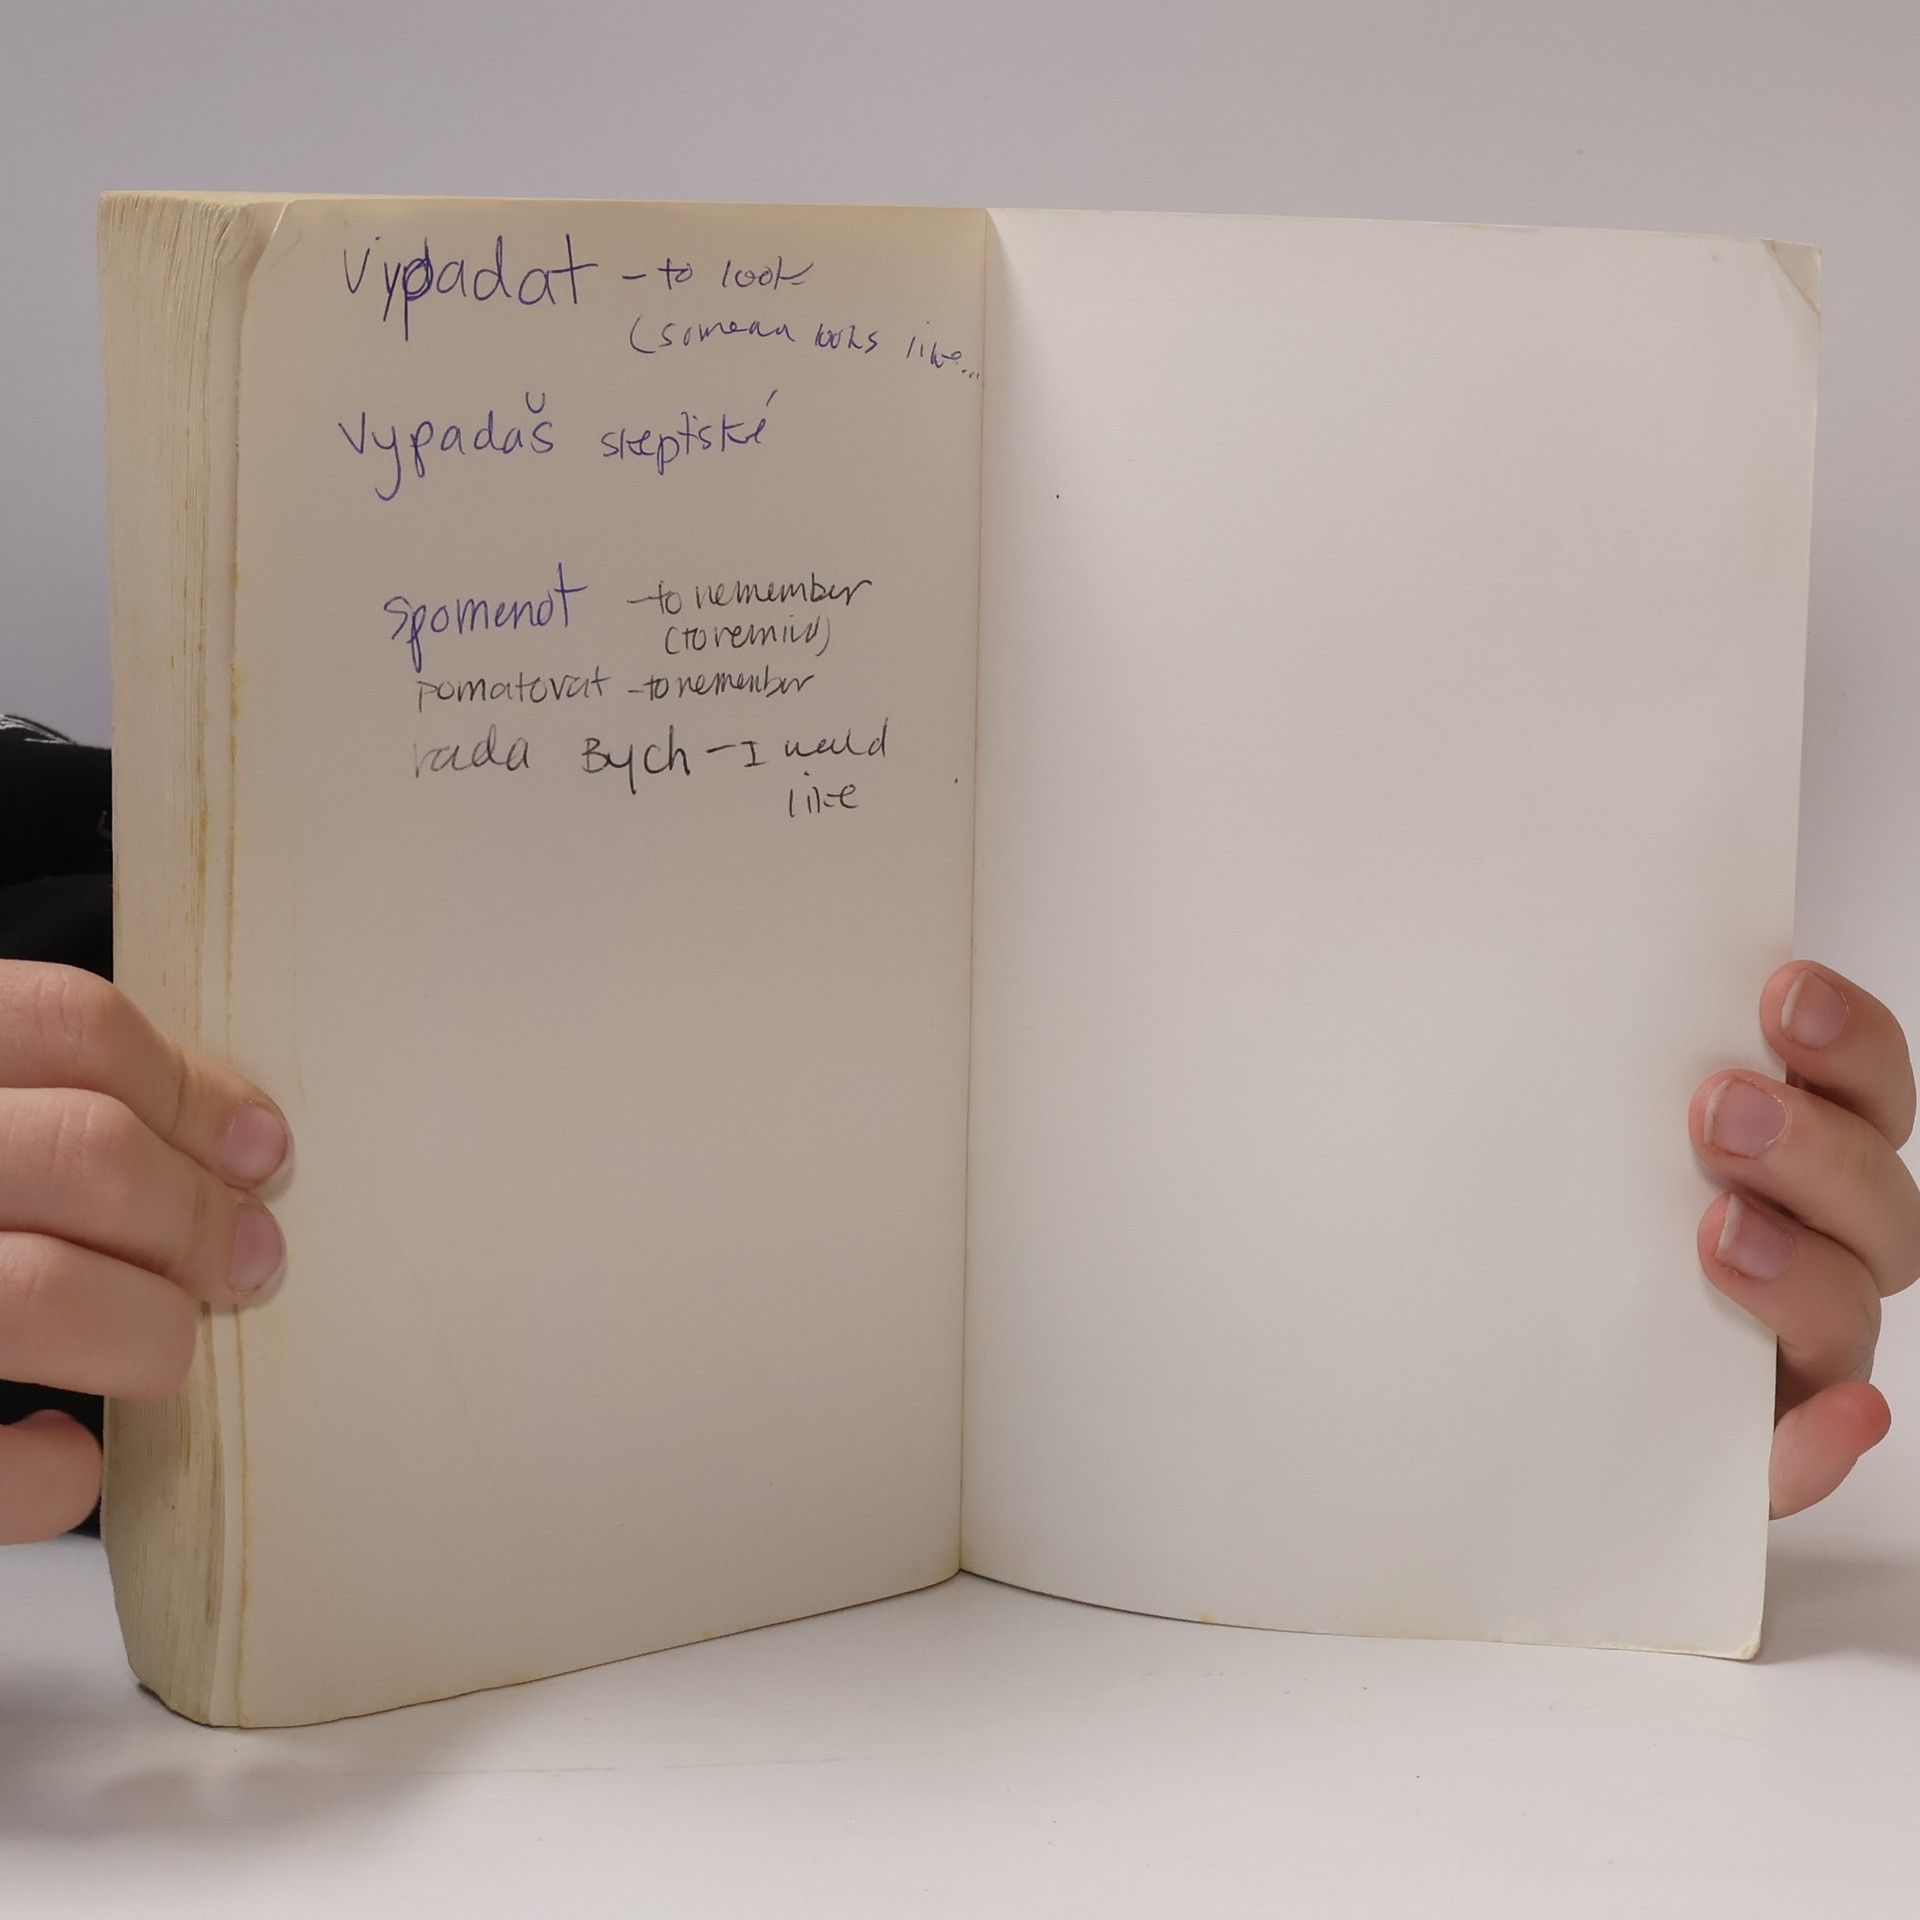 vypadat - to look
(someone looks like...
vypadaš skeptiské
spomenot - to remember
(to remind)
pomatovat - to remember
rada Bych - I would
like